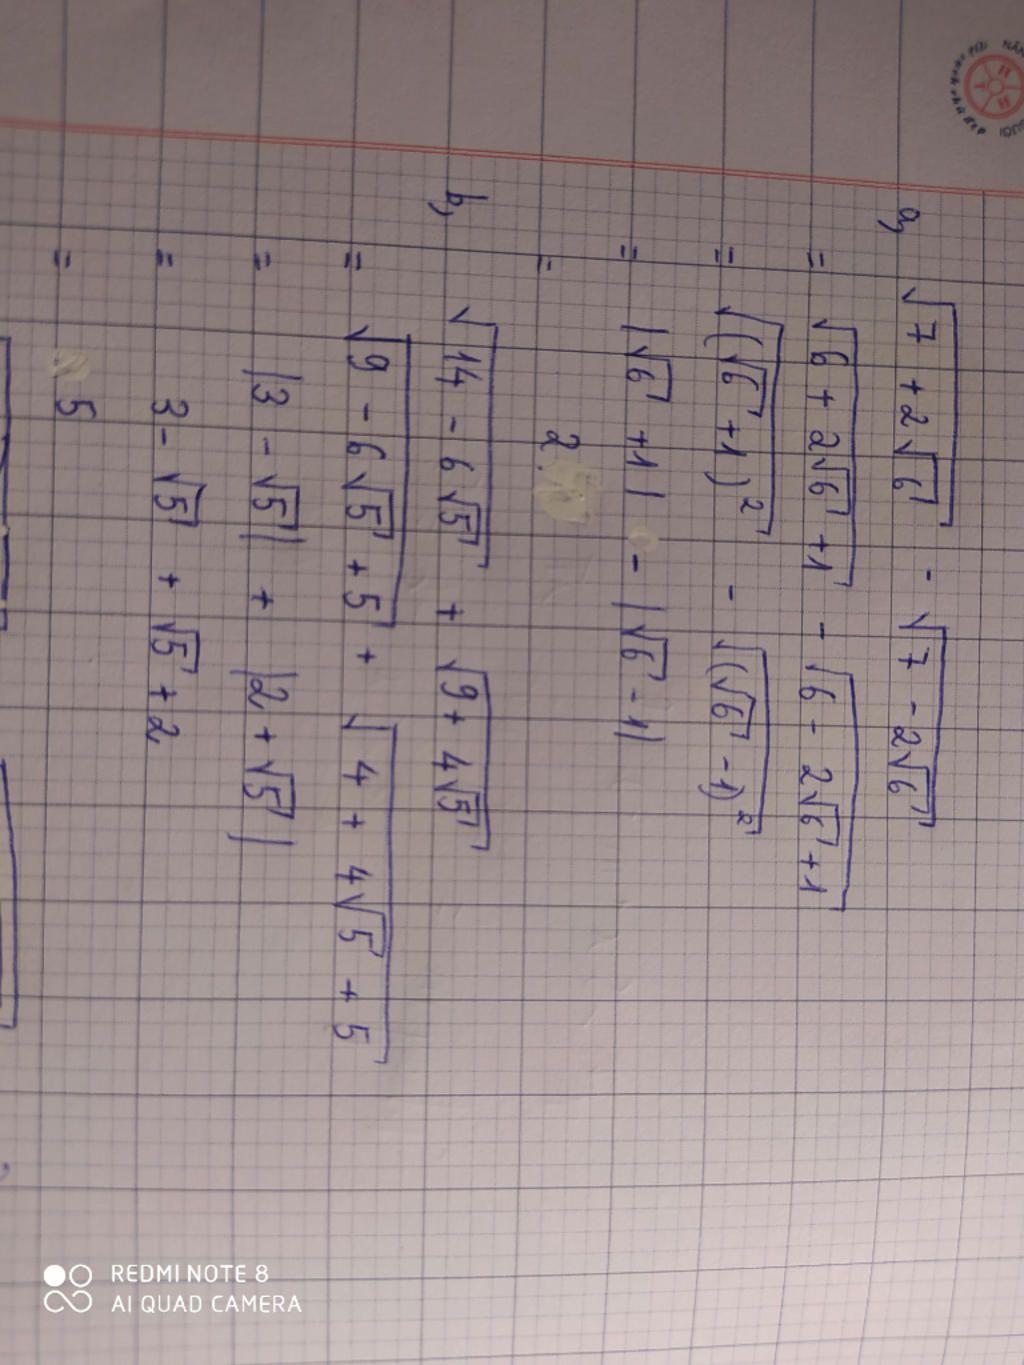 a, √(7 + 2√6) - √(7 - 2√6)
= √(6 + 2√6 + 1) - √(6 - 2√6 + 1)
= √((√6 + 1)²) - √((√6 - 1)²)
= |√6 + 1| - |√6 - 1|
= 2
b, √(14 - 6√5) + √(9 + 4√5)
= √(9 - 6√5 + 5) + √(4 + 4√5 + 5)
= |3 - √5| + |2 + √5|
= 3 - √5 + √5 + 2
= 5
REDMI NOTE 8
AI QUAD CAMERA